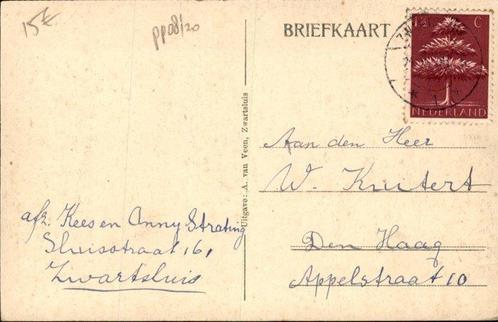 15€
pp08/20
BRIEFKAART
1½ C
NEDERLAND
Uitgave: A. van Veen, Zwartsluis
Aan den Heer
W. Kuitert
Den Haag
Appelstraat 10
afz. Kees en Anny Strating
Sluisstraat 161
Zwartsluis